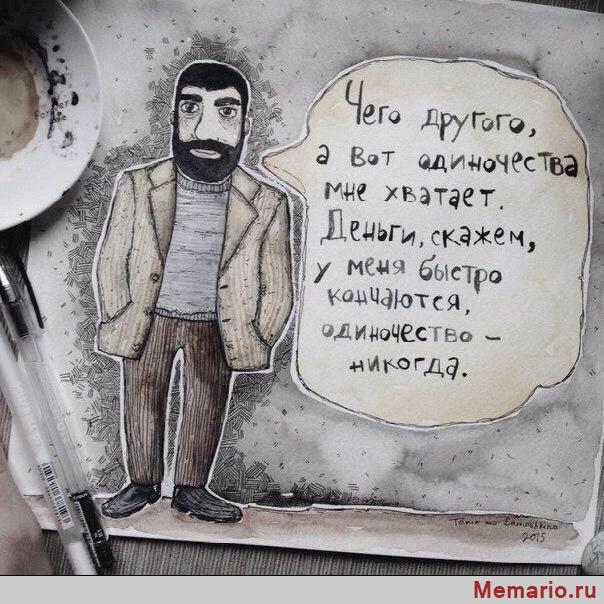 Чего другого,
а вот одиночества
мне хватает.
Деньги, скажем,
у меня быстро
кончаются,
одиночество –
никогда.
2015
Memario.ru